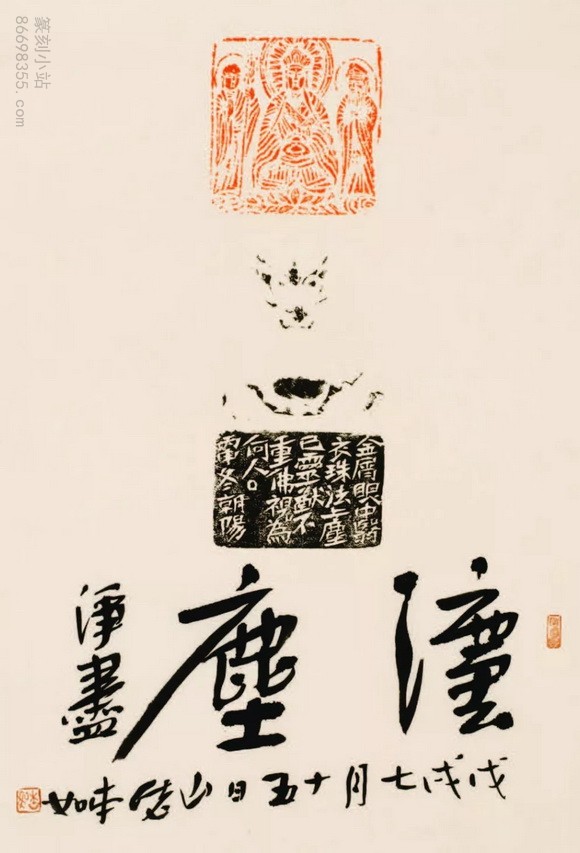 篆刻小站
86698355.com
金屑眼中翳
衣珠法上塵
己靈猶不
重佛祖為
何人
冬朝陽
灋塵
淨盡
戊戌七月十五日山僧本如